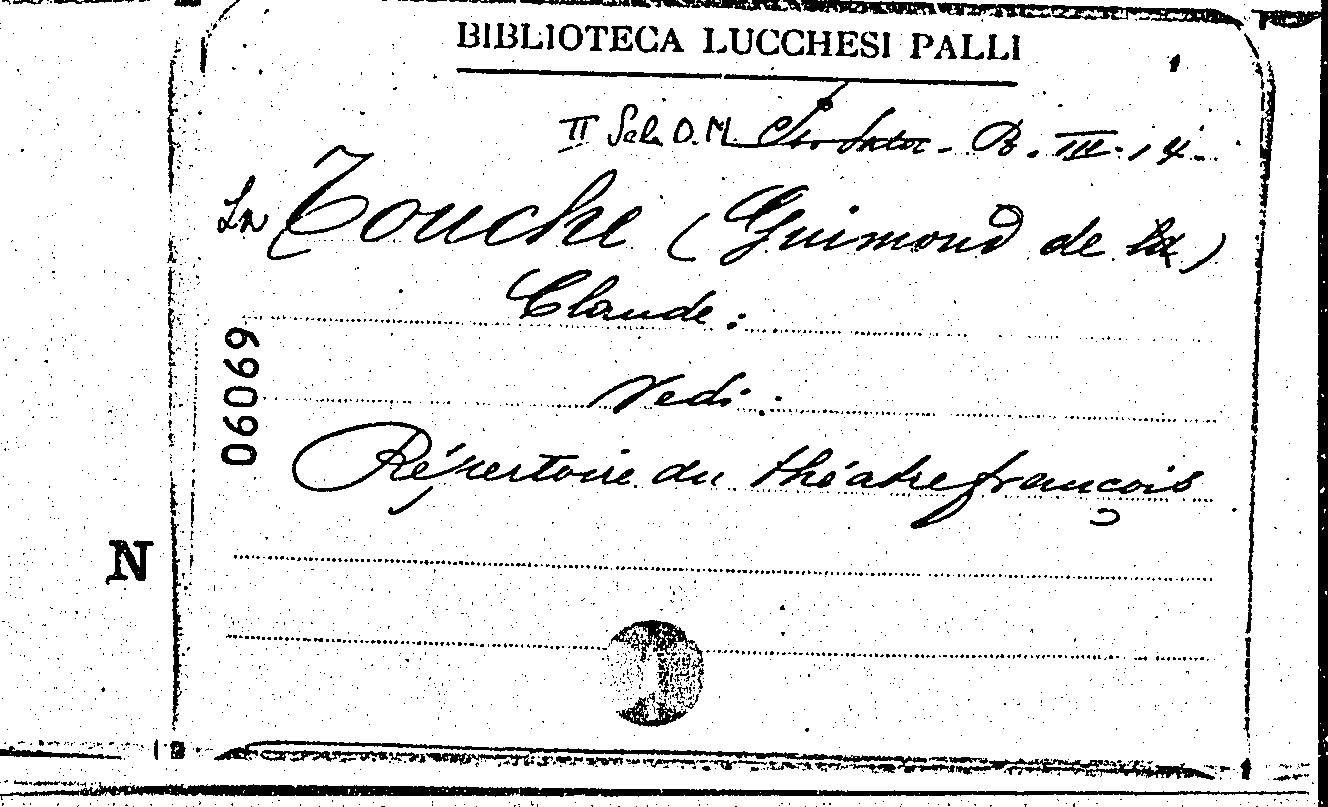 BIBLIOTECA LUCCHESI PALLI
II Sala O. M. - B. III. 14.
La Touche (Guimond de la)
Claude:
Vedi:
Répertoire du théatre françois
06069
N